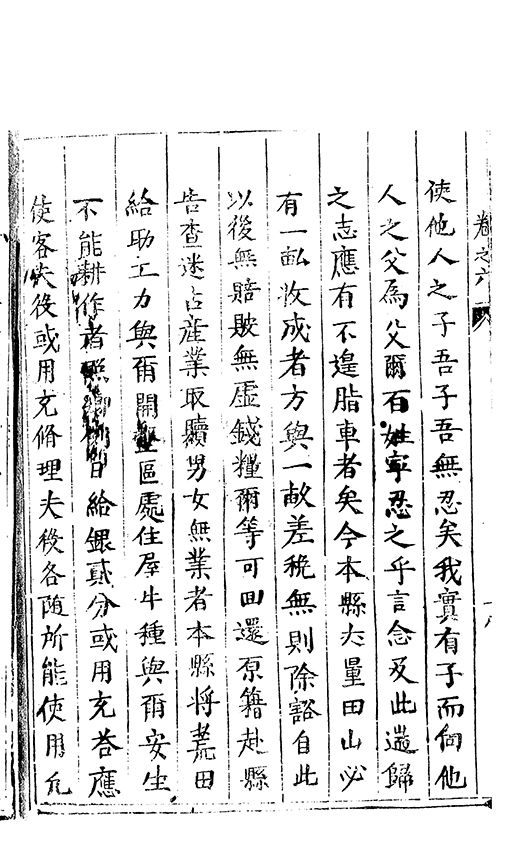 卷之六
十八
使他人之子吾子吾無忍矣我實有子而個他
人之父為父爾百姓寧忍之乎言念及此遄歸
之志應有不遑脂車者矣今本縣大量田山必
有一畝收成者方與一畝差稅無則除豁自此
以後無賠貱無虛錢糧爾等可回還原籍赴縣
告查迷占產業取贖男女無業者本縣將荒田
給助工力與爾開墾區處住屋牛種與爾安生
不能耕作者照 日給銀貳分或用充荅應
使客夫役或用充脩理夫役各隨所能使用允